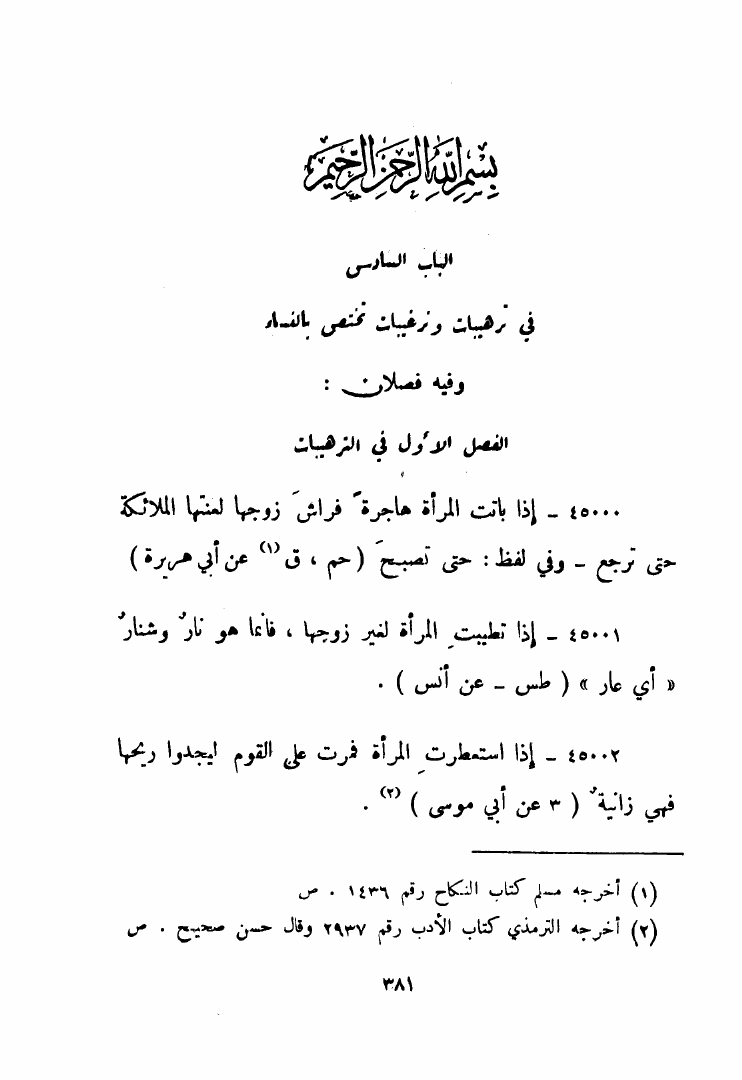 بِسْمِ اللَّهِ الرَّحْمَنِ الرَّحِيمِ
الباب السادس
في ترهيبات وترغيبات تختص بالنساء
وفيه فصلان :
الفصل الأول في الترهيبات
٤٥٠٠٠ - إذا باتت المرأة هاجرةً فراشَ زوجها لعنتها الملائكة
حتى ترجع - وفي لفظ : حتى تصبحَ ( حم ، ق (١) عن أبي هريرة )
٤٥٠٠١ - إذا تطيبتِ المرأة لغير زوجها ، فأنما هو نارٌ وشنارٌ
« أي عار » ( طس - عن أنس ) .
٤٥٠٠٢ - إذا استعطرتِ المرأة فمرت على القوم ليجدوا ريحها
فهي زانيةٌ ( ٣ عن أبي موسى ) (٢) .
(١) أخرجه مسلم كتاب النكاح رقم ١٤٣٦ . ص
(٢) أخرجه الترمذي كتاب الأدب رقم ٢٩٣٧ وقال حسن صحيح . ص
٣٨١